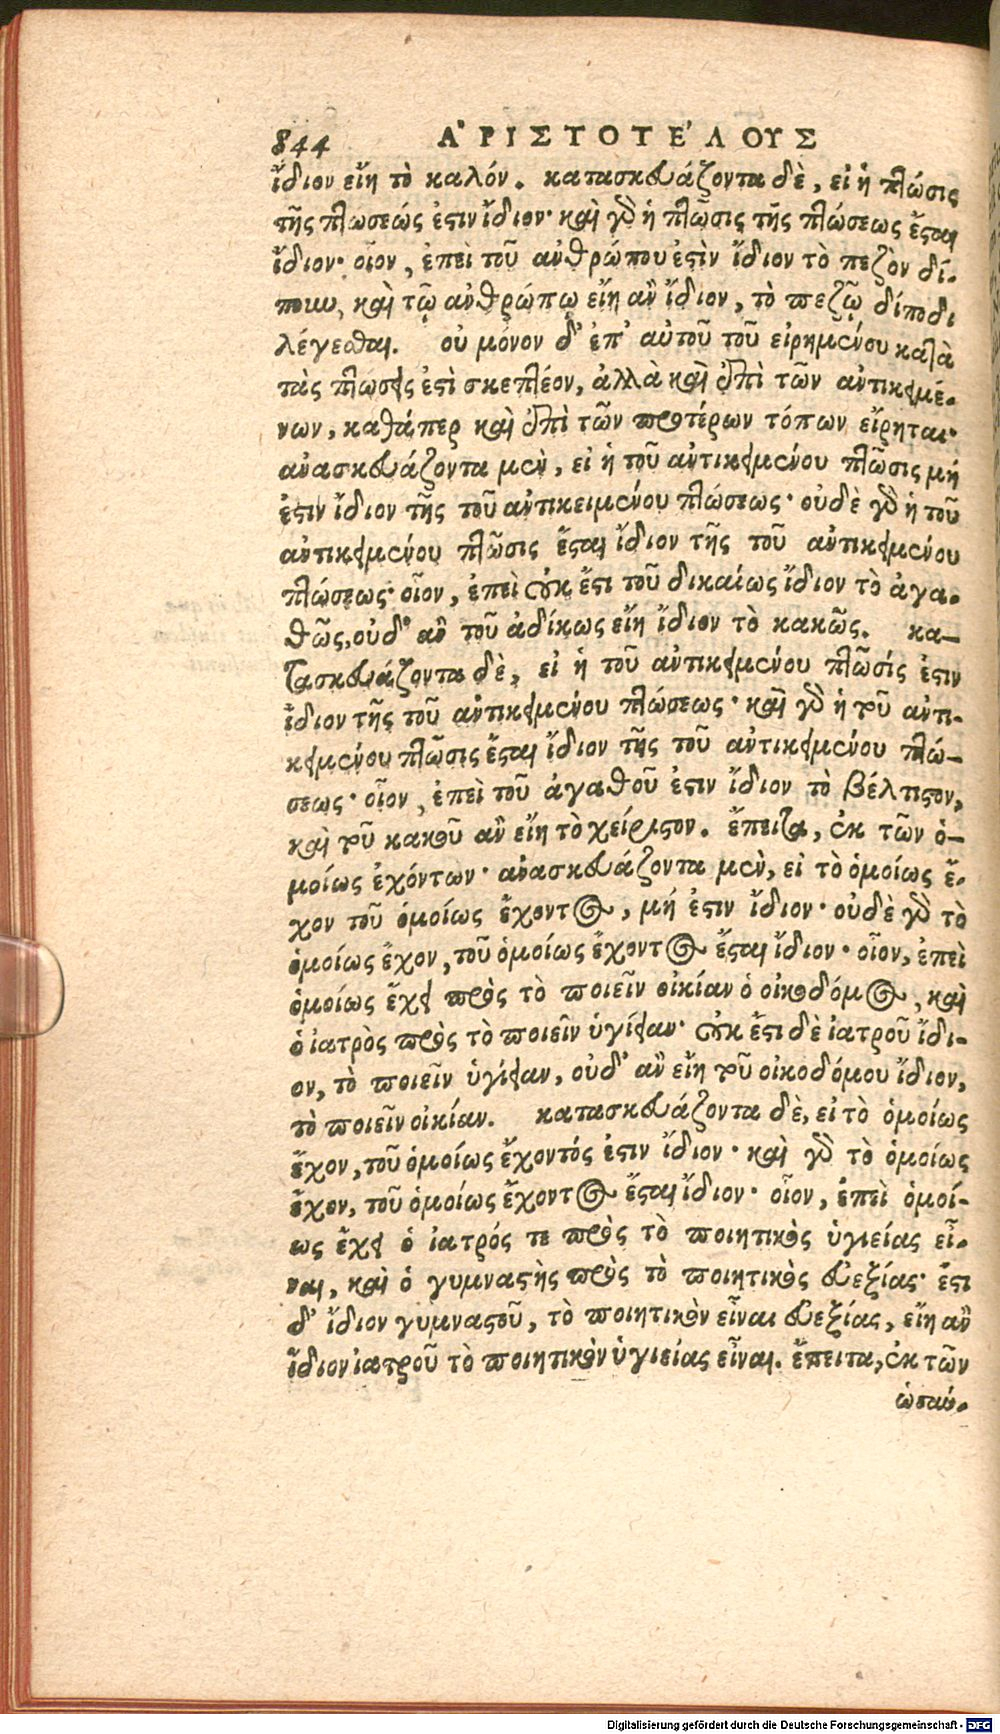 844 ἈΡΙΣΤΟΤΈΛΟΥΣ
ἴδιον εἴη τὸ καλόν. κατασκευάζοντα δὲ, εἰ ἡ πτῶσις
τῆς πτωσεώς ἐστιν ἴδιον· καὶ γὰρ ἡ πτῶσις τῆς πτώσεως ἔσται
ἴδιον· οἷον, ἐπεὶ τοῦ ἀνθρώπου ἐστὶν ἴδιον τὸ πεζὸν δί-
πουν, καὶ τῷ ἀνθρώπῳ εἴη ἂν ἴδιον, τὸ πεζῷ δίποδι
λέγεσθαι. οὐ μόνον δ' ἐπ' αὐτοῦ τοῦ εἰρημένου κατὰ
τὰς πτώσεις ἐστὶ σκεπτέον, ἀλλὰ καὶ ἐπὶ τῶν ἀντικειμέ-
νων, καθάπερ καὶ ἐπὶ τῶν προτέρων τόπων εἴρηται·
ἀνασκευάζοντα μὲν, εἰ ἡ τοῦ ἀντικειμένου πτῶσις μή
ἐστιν ἴδιον τῆς τοῦ ἀντικειμένου πτώσεως· οὐδὲ γὰρ ἡ τοῦ
ἀντικειμένου πτῶσις ἔσται ἴδιον τῆς τοῦ ἀντικειμένου
πτώσεως· οἷον, ἐπεὶ οὐκ ἔστι τοῦ δικαίως ἴδιον τὸ ἀγα-
θῶς, οὐδ' ἂν τοῦ ἀδίκως εἴη ἴδιον τὸ κακῶς. κα-
τασκευάζοντα δὲ, εἰ ἡ τοῦ ἀντικειμένου πτῶσίς ἐστιν
ἴδιον τῆς τοῦ ἀντικειμένου πτώσεως· καὶ γὰρ ἡ τοῦ ἀντι-
κειμένου πτῶσις ἔσται ἴδιον τῆς τοῦ ἀντικειμένου πτώ-
σεως· οἷον, ἐπεὶ τοῦ ἀγαθοῦ ἐστιν ἴδιον τὸ βέλτιστον,
καὶ τοῦ κακοῦ ἂν εἴη τὸ χείριστον. ἔπειτα, ἐκ τῶν ὁ-
μοίως ἐχόντων· ἀνασκευάζοντα μὲν, εἰ τὸ ὁμοίως ἔ-
χον τοῦ ὁμοίως ἔχοντος, μή ἐστιν ἴδιον· οὐδὲ γὰρ τὸ
ὁμοίως ἔχον, τοῦ ὁμοίως ἔχοντος ἔσται ἴδιον· οἷον, ἐπεὶ
ὁμοίως ἔχει πρὸς τὸ ποιεῖν οἰκίαν ὁ οἰκοδόμος, καὶ
ὁ ἰατρὸς πρὸς τὸ ποιεῖν ὑγίειαν· οὐκ ἔστι δὲ ἰατροῦ ἴδι-
ον, τὸ ποιεῖν ὑγίειαν, οὐδ' ἂν εἴη τοῦ οἰκοδόμου ἴδιον,
τὸ ποιεῖν οἰκίαν. κατασκευάζοντα δὲ, εἰ τὸ ὁμοίως
ἔχον, τοῦ ὁμοίως ἔχοντός ἐστιν ἴδιον· καὶ γὰρ τὸ ὁμοίως
ἔχον, τοῦ ὁμοίως ἔχοντος ἔσται ἴδιον· οἷον, ἐπεὶ ὁμοί-
ως ἔχει ὁ ἰατρός τε πρὸς τὸ ποιητικὸς ὑγιείας εἶ-
ναι, καὶ ὁ γυμναστὴς πρὸς τὸ ποιητικὸς εὐεξίας· ἔστι
δ' ἴδιον γυμναστοῦ, τὸ ποιητικὸν εἶναι εὐεξίας, εἴη ἂν
ἴδιον ἰατροῦ τὸ ποιητικὸν ὑγιείας εἶναι. ἔπειτα, ἐκ τῶν
ὡσαύ-
Digitalisierung gefördert durch die Deutsche Forschungsgemeinschaft - DFG